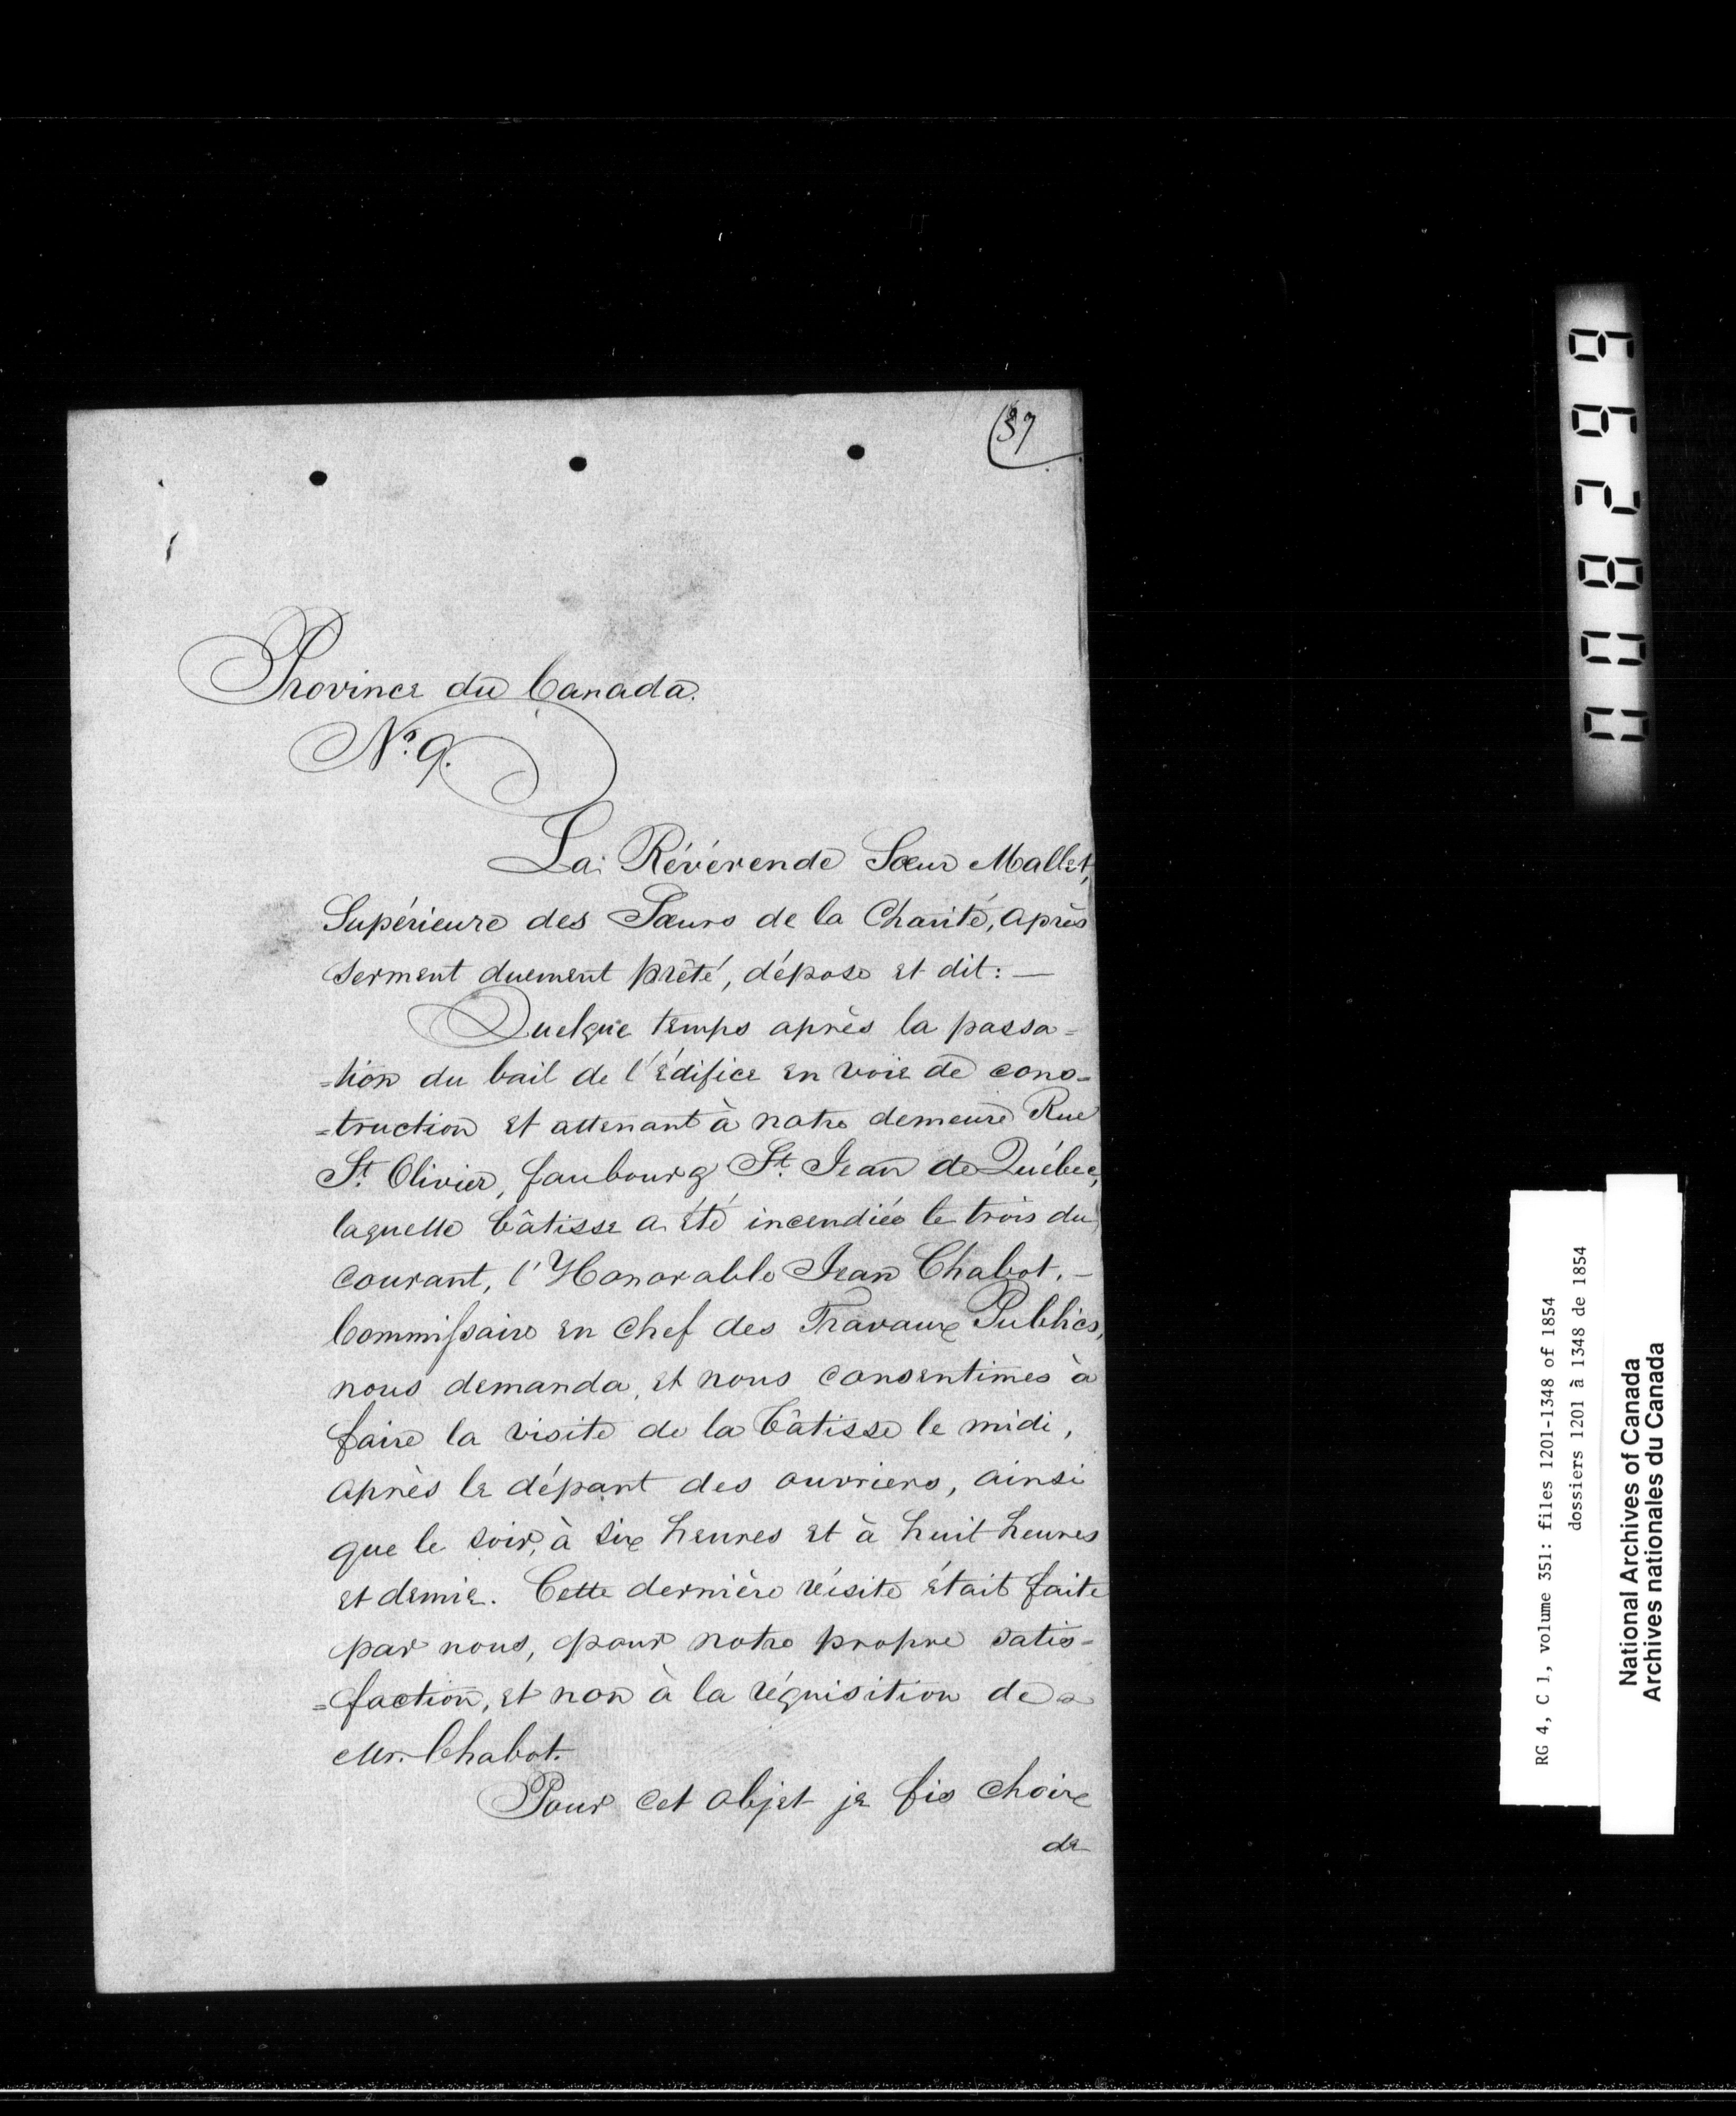 37
Province du Canada.
No. 9.
La Révérende Sœur Mallet,
Supérieure des Sœurs de la Charité, après
serment duement prêté, dépose et dit: —
Quelque temps après la passa=
=tion du bail de l'édifice en voie de cons=
=truction et attenant à notre demeure Rue
St. Olivier, faubourg St. Jean de Québec,
laquelle bâtisse a été incendiée le trois du
courant, l'Honorable Jean Chabot. —
Commissaire en chef des Travaux Publics,
nous demanda, et nous consentimes à
faire la visite de la bâtisse le midi,
après le départ des ouvriers, ainsi
que le soir, à six heures et à huit heures
et demie. Cette dernière visite était faite
par nous, pour notre propre satis=
=faction, et non à la réquisition de
Mr. Chabot.
Pour cet objet je fis choix
de
002299
RG 4, C 1, volume 351: files 1201-1348 of 1854
dossiers 1201 à 1348 de 1854
National Archives of Canada
Archives nationales du Canada